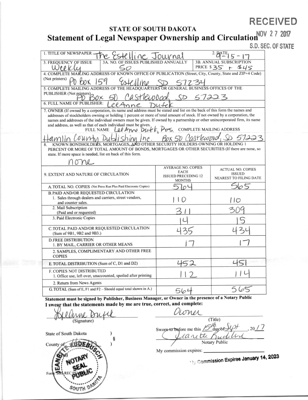 RECEIVED
NOV 27 2017
S.D. SEC. OF STATE
STATE OF SOUTH DAKOTA
Statement of Legal Newspaper Ownership and Circulation
1. TITLE OF NEWSPAPER The Estelline Journal
2. DATE 9-15-17
3. FREQUENCY OF ISSUE Weekly
3A. NO. OF ISSUES PUBLISHED ANNUALLY 50
3B. ANNUAL SUBSCRIPTION PRICE $35 + $45
4. COMPLETE MAILING ADDRESS OF KNOWN OFFICE OF PUBLICATION (Street, City, County, State and ZIP+4 Code) (Not printers)
PO Box 159 Estelline SD 57234
5. COMPLETE MAILING ADDRESS OF THE HEADQUARTERS OF GENERAL BUSINESS OFFICES OF THE PUBLISHER (Not printer)
PO Box 50 Castlewood, SD 57223
6. FULL NAME OF PUBLISHER: LeeAnne Dufek
7. OWNER (If owned by a corporation, its name and address must be stated
FULL NAME LeeAnne Dufek, Pres. COMPLETE MAILING ADDRESS
Hamlin County Publishing Inc. Box 50 Castlewood, SD 57223
8. KNOWN BONDHOLDERS, MORTGAGES, AND OTHER SECURITY HOLDERS OWNING OR HOLDING 1 PERCENT OR MORE OF TOTAL AMOUNT OF BONDS, MORTGAGES OR OTHER SECURITIES (If there are none, so state. If more space is needed, list on back of this form.
none
9. EXTENT AND NATURE OF CIRCULATION
AVERAGE NO. COPIES EACH ISSUES PRECEDING 12 MONTHS
ACTUAL NO. COPIES ISSUED NEAREST TO FILING DATE
A. TOTAL NO. COPIES 564 565
B. PAID AND/OR REQUESTED CIRCULATION
1. Sales through dealers and carriers, street vendors, and counter sales. 110 110
2. Mail Subscription (Paid and or requested) 311 309
3. Paid Electronic Copies 14 15
C. TOTAL PAID AND/OR REQUESTED CIRCULATION (Sum of 9B1, 9B2 and 9B3.) 435 434
D. FREE DISTRIBUTION
1. BY MAIL, CARRIER OR OTHER MEANS 17 17
2. SAMPLES, COMPLIMENTARY AND OTHER FREE COPIES
E. TOTAL DISTRIBUTION (Sum of C, D1 and D2) 452 451
F. COPIES NOT DISTRIBUTED
1. Office use, left over, unaccounted, spoiled after printing 112 114
2. Return from News Agents
G. TOTAL (Sum of E, F1 and F2 - Should equal total shown in A.) 564 565
Statement must be signed by Publisher, Business Manager, or Owner in the presence of a Notary Public
I swear that the statements made by me are true, correct, and complete:
LeeAnne Dufek
Owner
(Signature)
(Title)
State of South Dakota
County of
Notary Public
My commission expires:
My Commission Expires January 14, 2023
NOTARY
SEAL
PUBLIC
SOUTH DAKOTA